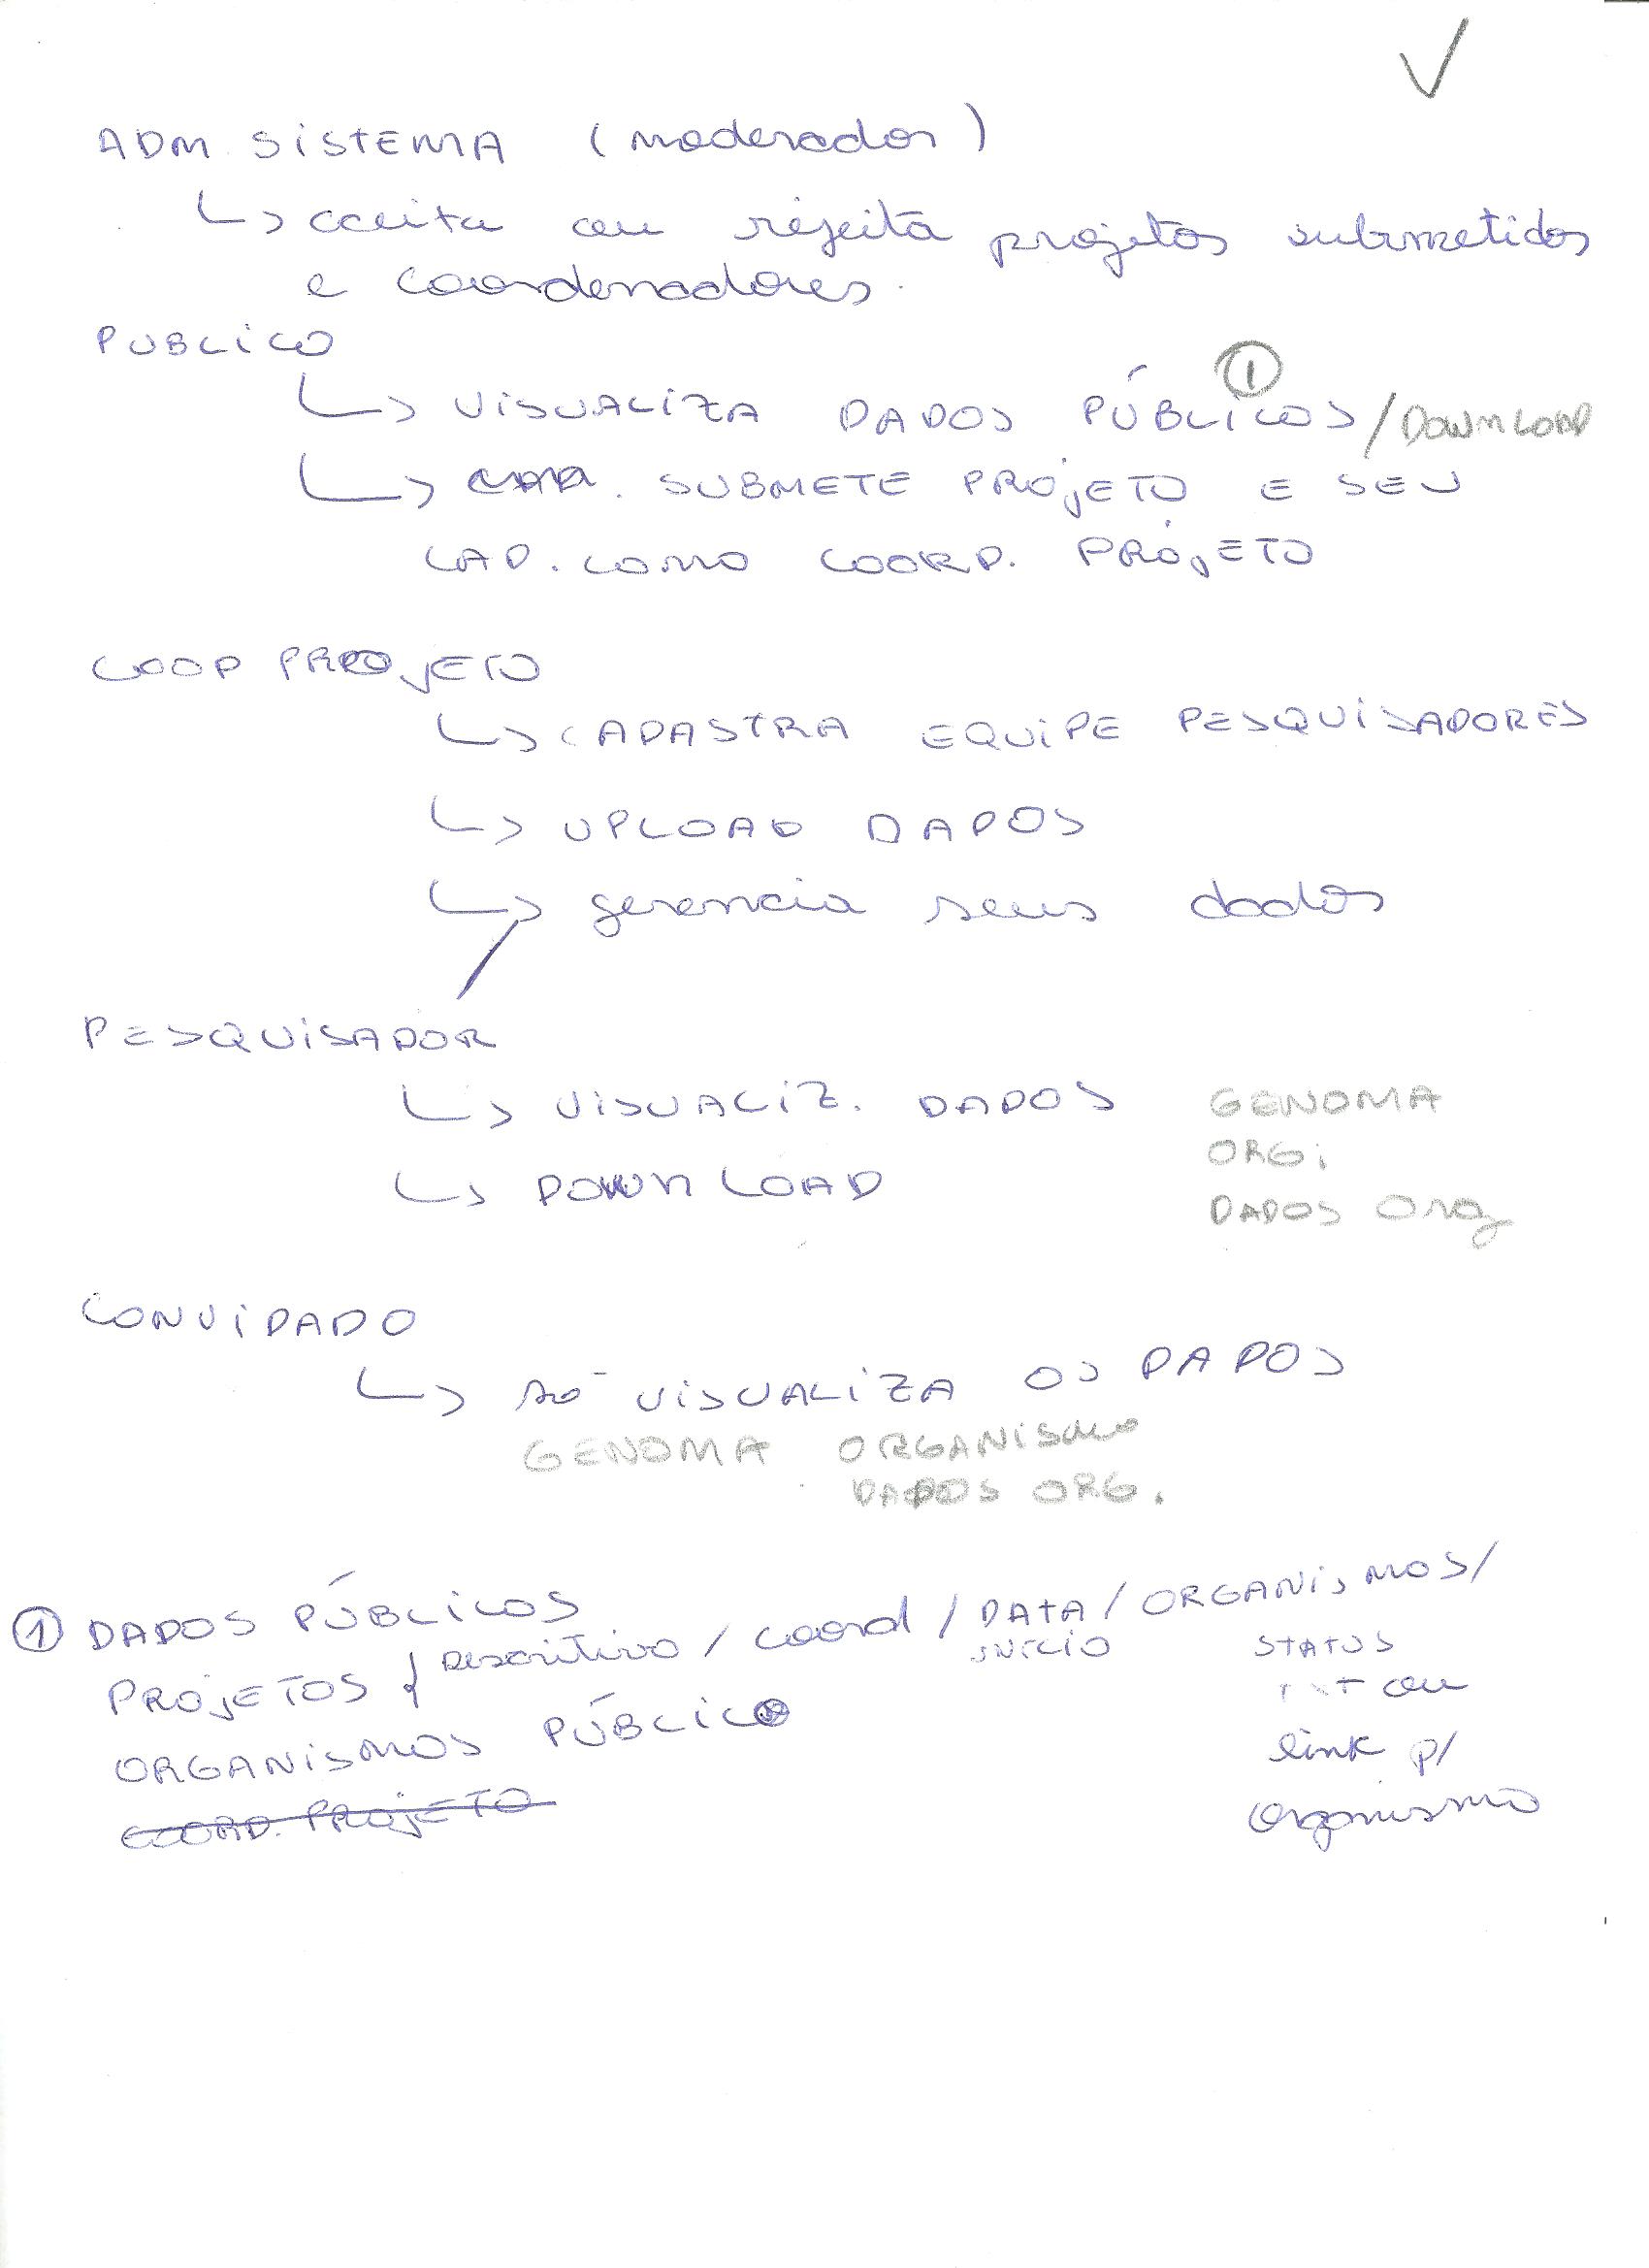 ADM. SISTEMA (moderador)
↳ aceita ou rejeita projetos submetidos
e coordenadores.
PUBLICO
↳ VISUALIZA DADOS PÚBLICOS ① / DOWNLOAD
↳ SUBMETE PROJETO E SEU
CAD. COMO COORD. PROJETO
COOP PROJETO
↳ CADASTRA EQUIPE PESQUISADORES
↳ UPLOAD DADOS
↳ gerencia seus dados
PESQUISADOR
↳ VISUALIZ. DADOS GENOMA
ORG.
↳ DOWNLOAD
DADOS Org
CONVIDADO
↳ só VISUALIZA OS DADOS
GENOMA ORGANISMO
DADOS ORG.
① DADOS PÚBLICOS
PROJETOS { Descritivo / coord / DATA INÍCIO / ORGANISMOS /
STATUS
ou
ORGANISMOS PÚBLICO
link p/
organismo
COORD. PROJETO